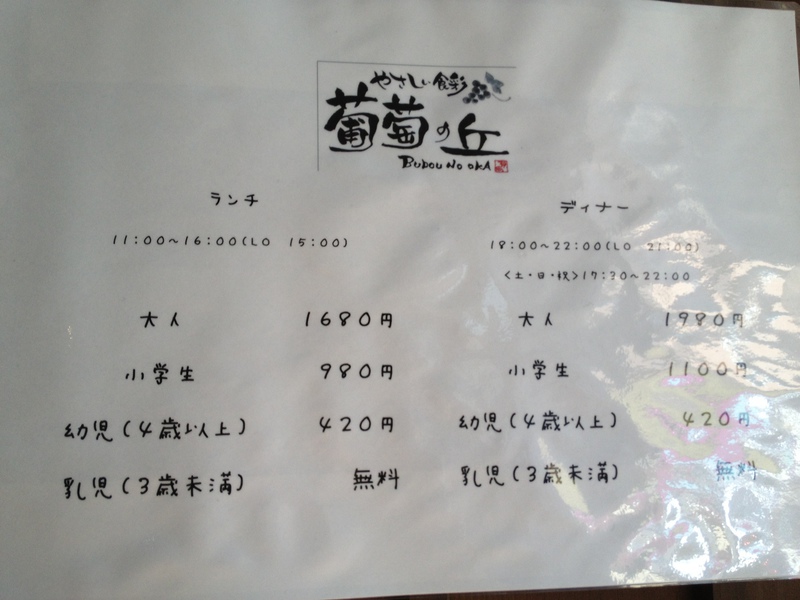 やさしい食彩
葡萄の丘
Budou no oka
ランチ
11:00~16:00(LO 15:00)
大人 1680円
小学生 980円
幼児(4歳以上) 420円
乳児(3歳未満) 無料
ディナー
18:00~22:00(LO 21:00)
<土・日・祝>17:30~22:00
大人 1980円
小学生 1100円
幼児(4歳以上) 420円
乳児(3歳未満) 無料